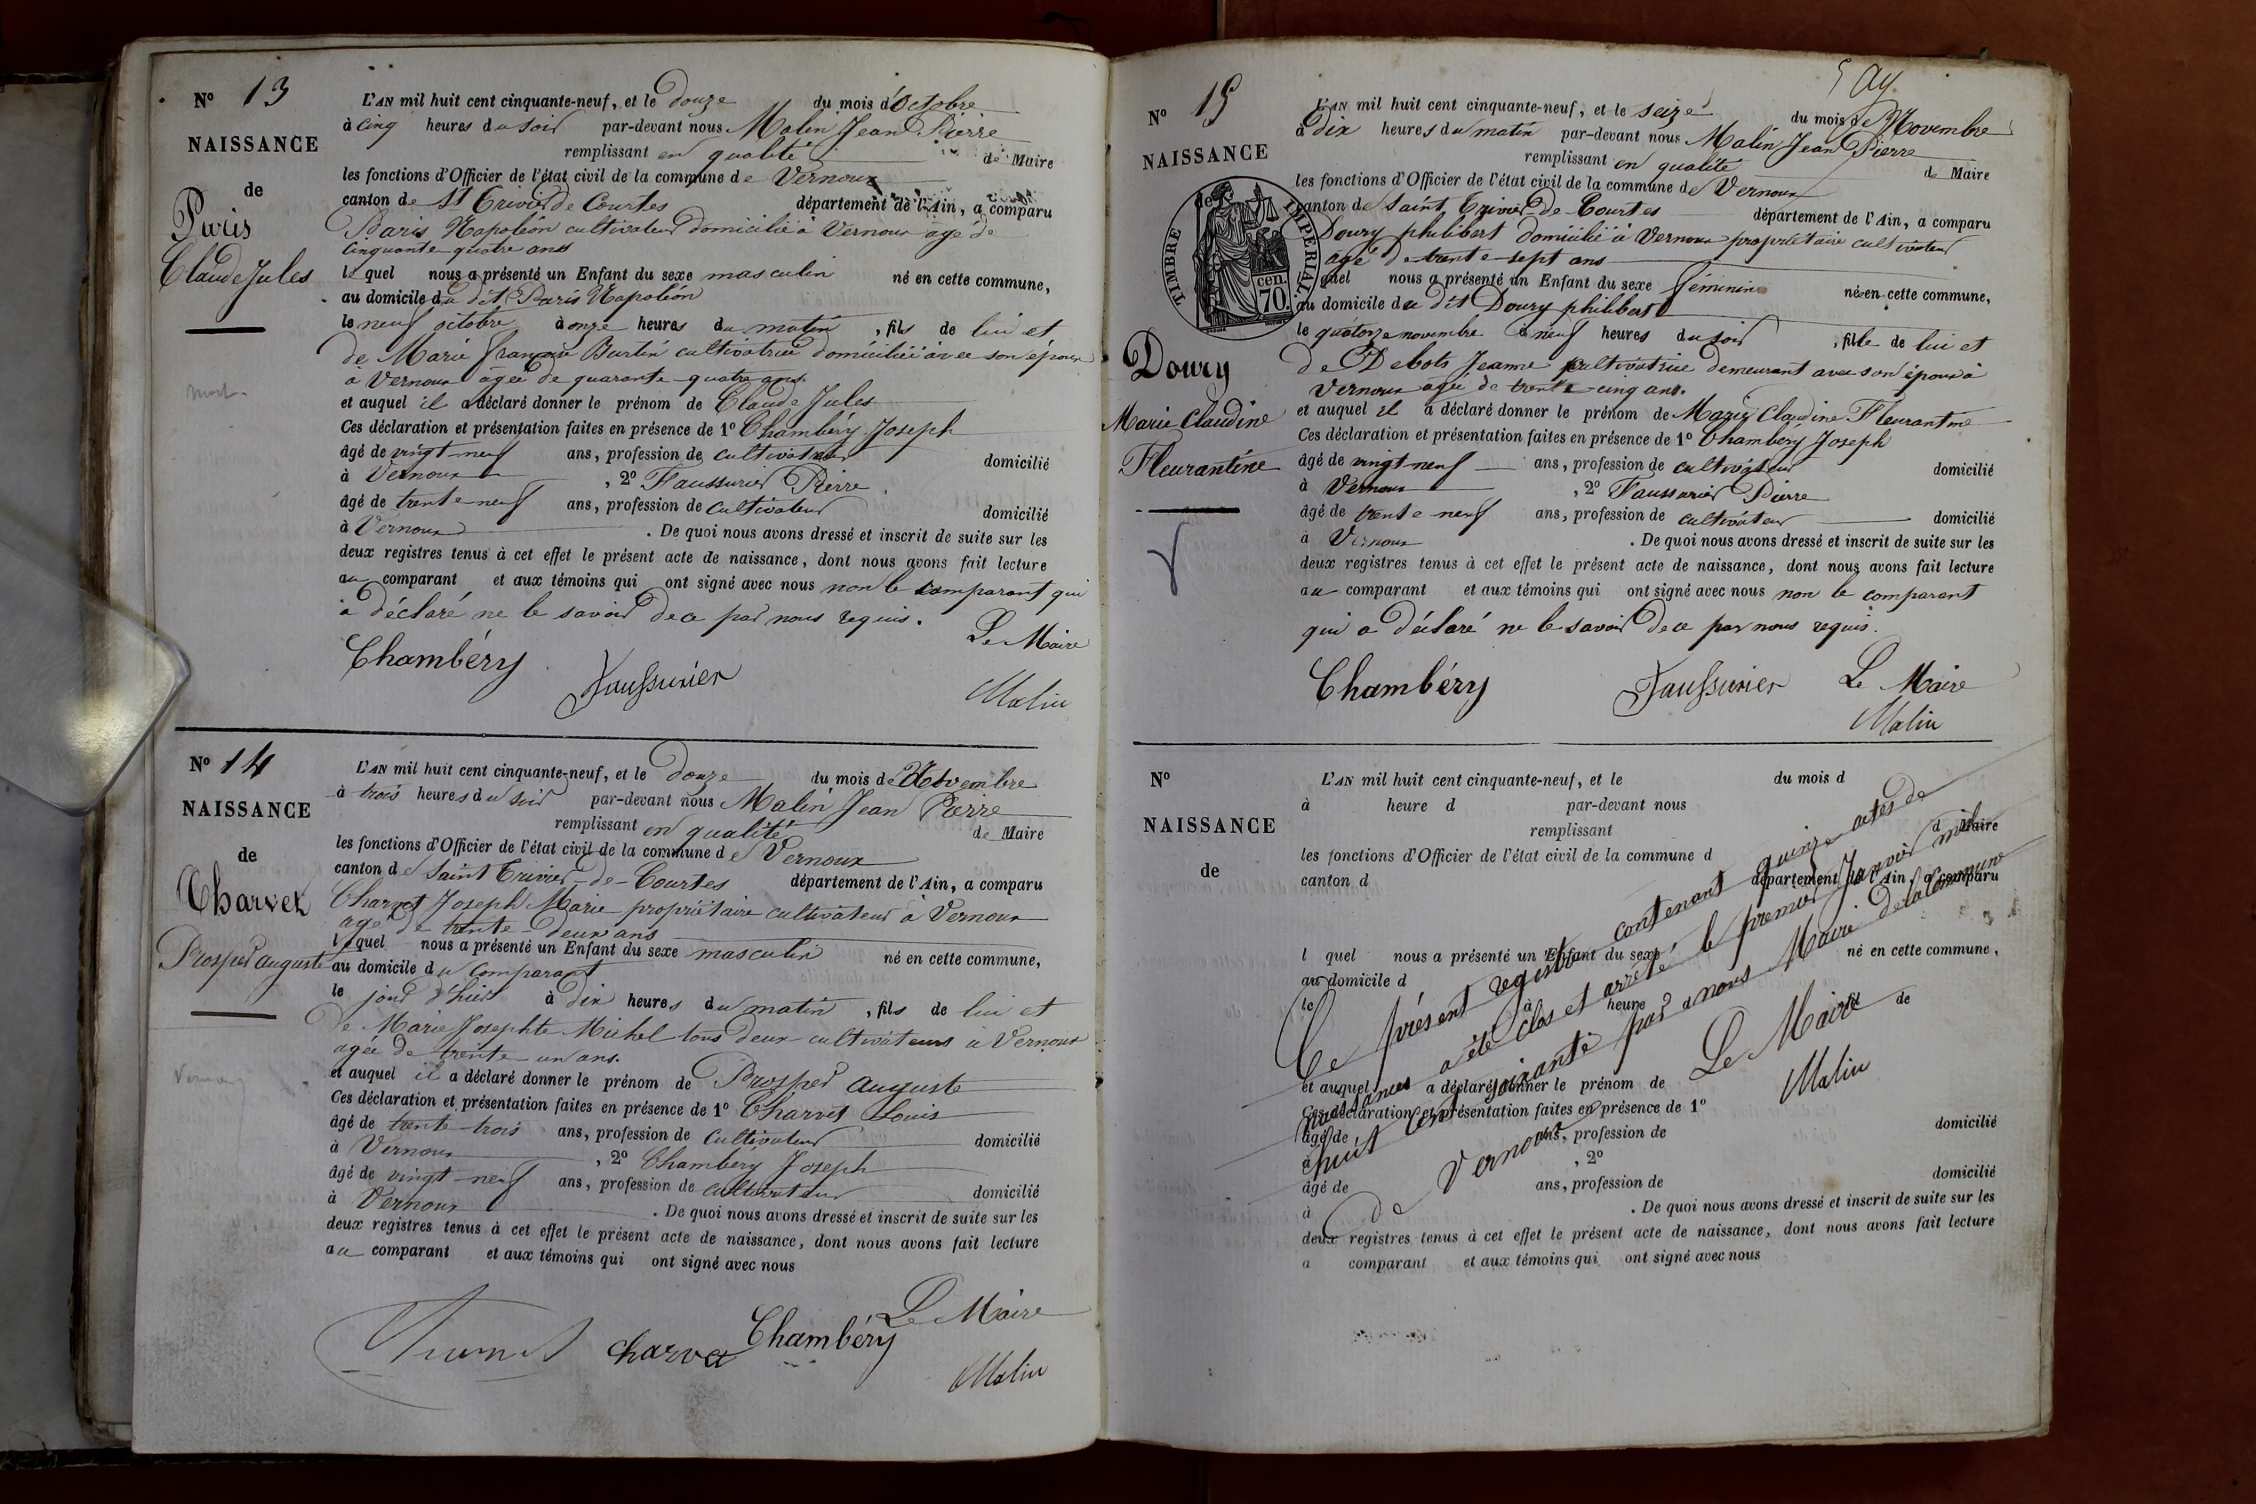 Nº 13
NAISSANCE
de
Paris
Claude Jules
mort.
L'AN mil huit cent cinquante-neuf, et le douze du mois d'Octobre
à cinq heures du soir par-devant nous Malin Jean Pierre
remplissant en qualité de Maire
les fonctions d'Officier de l'état civil de la commune de Vernoux
canton de St Trivier de Courtes département de l'Ain, a comparu
Paris Napoléon cultivateur domicilié à Vernoux agé de
cinquante-quatre ans
lequel nous a présenté un Enfant du sexe masculin né en cette commune,
au domicile du dit Paris Napoléon
le neuf octobre à onze heures du matin, fils de lui et
de Marie françoise Burtin cultivatrice domiciliée avec son époux
à Vernoux agée de quarante-quatre ans
et auquel il a déclaré donner le prénom de Claude Jules
Ces déclaration et présentation faites en présence de 1º Chambéry Joseph
âgé de vingt-neuf ans, profession de cultivateur domicilié
à Vernoux, 2º Faussurier Pierre
âgé de trente-neuf ans, profession de cultivateur domicilié
à Vernoux. De quoi nous avons dressé et inscrit de suite sur les
deux registres tenus à cet effet le présent acte de naissance, dont nous avons fait lecture
au comparant et aux témoins qui ont signé avec nous non le comparant qui
a déclaré ne le savoir de ce par nous requis.
Le Maire
Chambéry Faussurier Malin
Nº 14
NAISSANCE
de
Charvet
Prosper auguste
L'AN mil huit cent cinquante-neuf, et le douze du mois de Novembre
à trois heures du soir par-devant nous Malin Jean Pierre
remplissant en qualité de Maire
les fonctions d'Officier de l'état civil de la commune de Vernoux
canton de Saint Trivier-de-Courtes département de l'Ain, a comparu
Charvet Joseph Marie propriétaire cultivateur à Vernoux
agé de trente-deux ans
lequel nous a présenté un Enfant du sexe masculin né en cette commune,
au domicile du comparant
le jour d'hier à dix heures du matin, fils de lui et
de Marie Josephte Michel tous deux cultivateurs à Vernoux
agée de trente un ans.
et auquel il a déclaré donner le prénom de Prosper auguste
Ces déclaration et présentation faites en présence de 1º Charvet Louis
âgé de trente-trois ans, profession de cultivateur domicilié
à Vernoux, 2º Chambéry Joseph
âgé de vingt-neuf ans, profession de cultivateur domicilié
à Vernoux. De quoi nous avons dressé et inscrit de suite sur les
deux registres tenus à cet effet le présent acte de naissance, dont nous avons fait lecture
au comparant et aux témoins qui ont signé avec nous
Le Maire
charvet Chambéry
Malin
Nº 15
NAISSANCE
de
TIMBRE IMPERIAL.
70 cen.
Doury
Marie Claudine
Fleurantine
L'AN mil huit cent cinquante-neuf, et le seize du mois de Novembre
à dix heures du matin par-devant nous Malin Jean Pierre
remplissant en qualité de Maire
les fonctions d'Officier de l'état civil de la commune de Vernoux
canton de Saint Trivier-de-Courtes département de l'Ain, a comparu
Doury philibert domicilié à Vernoux propriétaire cultivateur
agé de trente-sept ans
lequel nous a présenté un Enfant du sexe féminin né en cette commune,
au domicile du dit Doury philibert
le quatorze novembre à neuf heures du soir, fille de lui et
de Debots Jeanne cultivatrice demeurant avec son époux à
Vernoux agée de trente-cinq ans.
et auquel il a déclaré donner le prénom de Marie Claudine Fleurantine
Ces déclaration et présentation faites en présence de 1º Chambéry Joseph
âgé de vingt neuf ans, profession de cultivateur domicilié
à Vernoux, 2º Faussurier Pierre
âgé de trente-neuf ans, profession de cultivateur domicilié
à Vernoux. De quoi nous avons dressé et inscrit de suite sur les
deux registres tenus à cet effet le présent acte de naissance, dont nous avons fait lecture
au comparant et aux témoins qui ont signé avec nous non le comparant
qui a déclaré ne le savoir de ce par nous requis.
Chambéry Faussurier Le Maire
Malin
Nº
NAISSANCE
de
L'AN mil huit cent cinquante-neuf, et le du mois d
à heure d par-devant nous
remplissant d Maire
les fonctions d'Officier de l'état civil de la commune d
canton d département de l'Ain, a comparu
l quel nous a présenté un Enfant du sexe né en cette commune,
au domicile d
le à heure , fil de
et auquel a déclaré donner le prénom de
Ces déclaration et présentation faites en présence de 1º
âgé de ans, profession de domicilié
à , 2º
âgé de ans, profession de domicilié
à . De quoi nous avons dressé et inscrit de suite sur les
deux registres tenus à cet effet le présent acte de naissance, dont nous avons fait lecture
a comparant et aux témoins qui ont signé avec nous
Le présent registre contenant quinze actes de
naissances a été clos et arrêté le premier Janvier mil
huit cent soixante par nous Maire de la Commune
de Vernoux
Le Maire
Malin